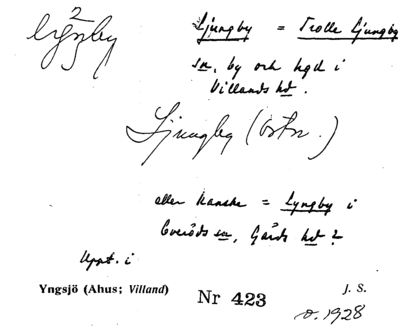 Ljungby = Trolle Ljungby
sn, by och hgd i
Villands hd.
Ljungby (ortn.)
eller kanske = Lyngby i
Everöds sn, Gärds hd?
Uppt. i
Yngsjö (Åhus; Villand)
Nr 423
J. S.
1928